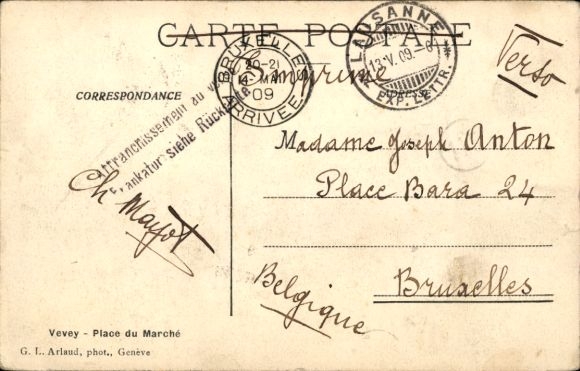 CARTE POSTALE
Imprimé
Verso
BRUXELLES
20-21
14 MAI
09
ARRIVÉE
LAUSANNE
13.V.09.
EXP. LETTR.
CORRESPONDANCE
ADRESSE
Affranchissement au verso
Frankatur siehe Rückseite
Ch Mayot
Madame Joseph Anton
Place Bara 24
Bruxelles
Belgique
Vevey - Place du Marché
G. L. Arlaud, phot., Genève